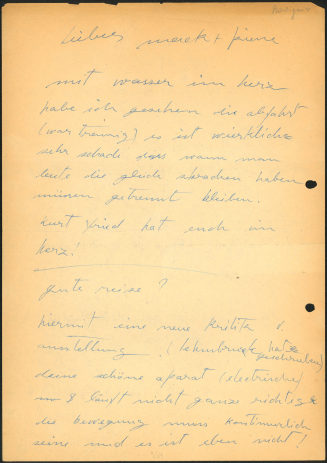 liebes merek + feine
mit wasser im herz
habe ich gesehen die abfahrt
(war traurig) es ist wirklich
sehr schade dass wann man
leute die gleich sprachen haben
müssen getrennt bleiben.
kurt fried hat euch im
herz!
gute reise?
hiermit eine neue kritik v.
ausstellung. (lehmbruck hat
geschrieben)
deine schöne aparat (electrische)
läuft nicht ganze richtig
die bewegung muss kontinuerlich
seine und es ist eben nicht!